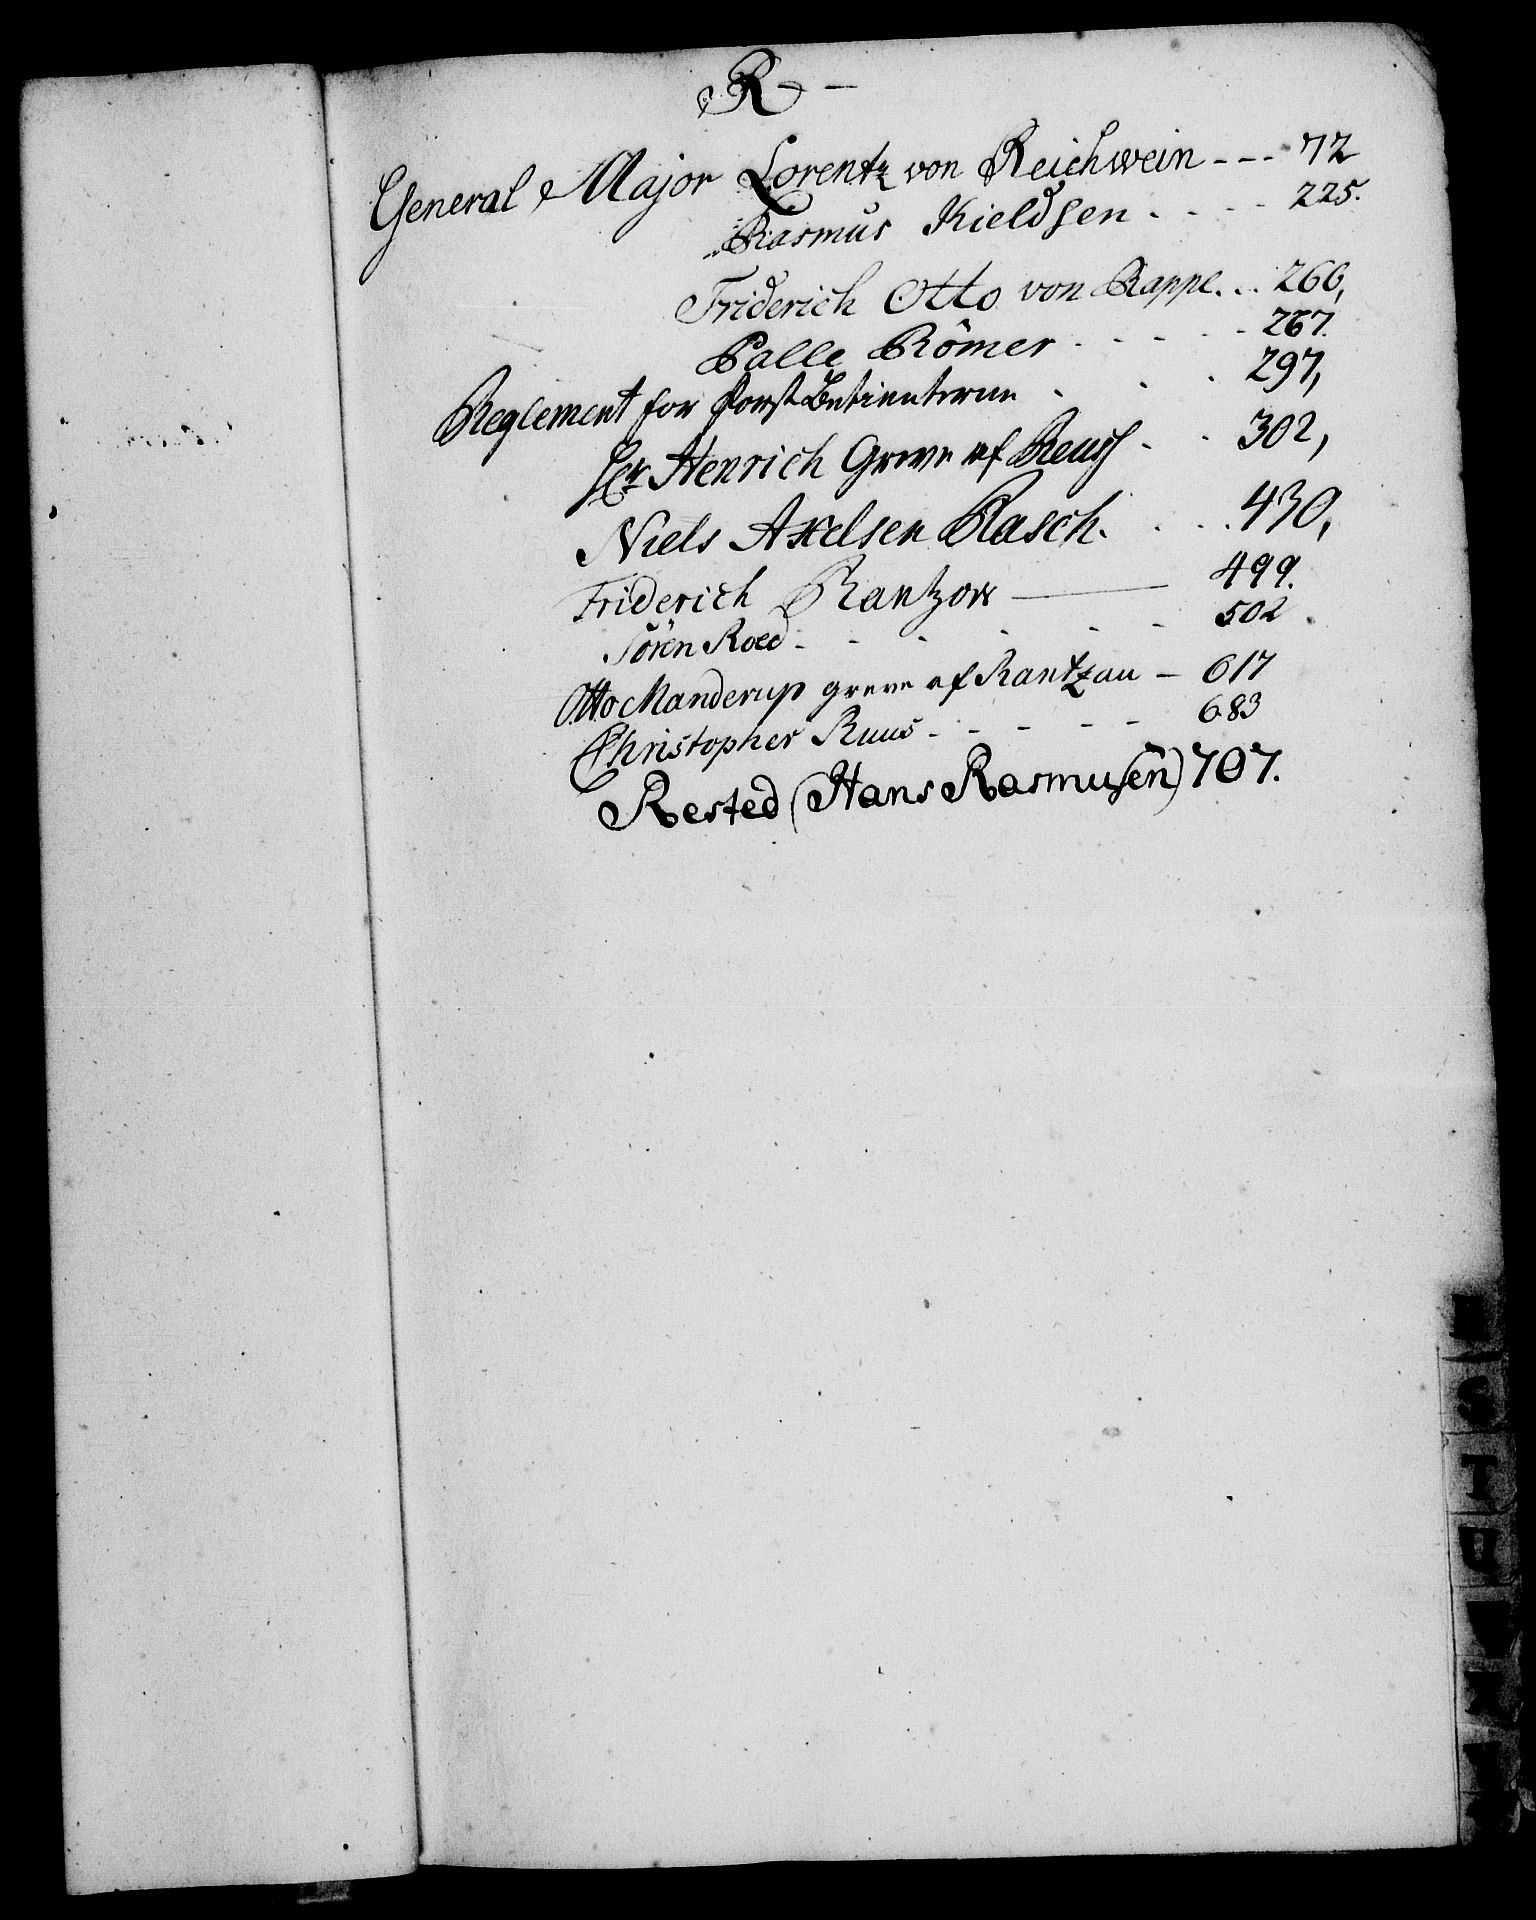 R -
General Major Lorentz von Reichwein - - - 72
Rasmus Kieldsen . . . . 225.
Friderich Otto von Rappe . . . 260,
Palle Römer . . . . . 267.
Reglement for Forst Betienterne . . . 297,
Hr Henrich Greve af Reusz . . 302,
Niels Axelsen Rasch . . . . 430,
Friderich Rantzow — 499.
Sören Roed . - - - - - 502.
Otto Manderup greve af Rantzau - 617
Christopher Ruus - - - - - 683
Rested (Hans Rasmusen) 707.
R
S
T
U